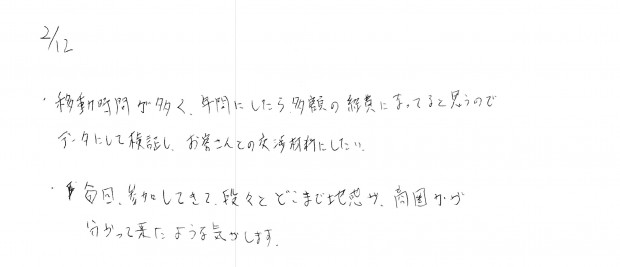 2/12
・移動時間が多く、年間にしたら、多額の経費になってると思うので
データにして検証し、お客さんとの交渉材料にしたい。
・毎回、参加してきて、段々とどこまで地悪か、商圏かが
分かって来たような気がします。